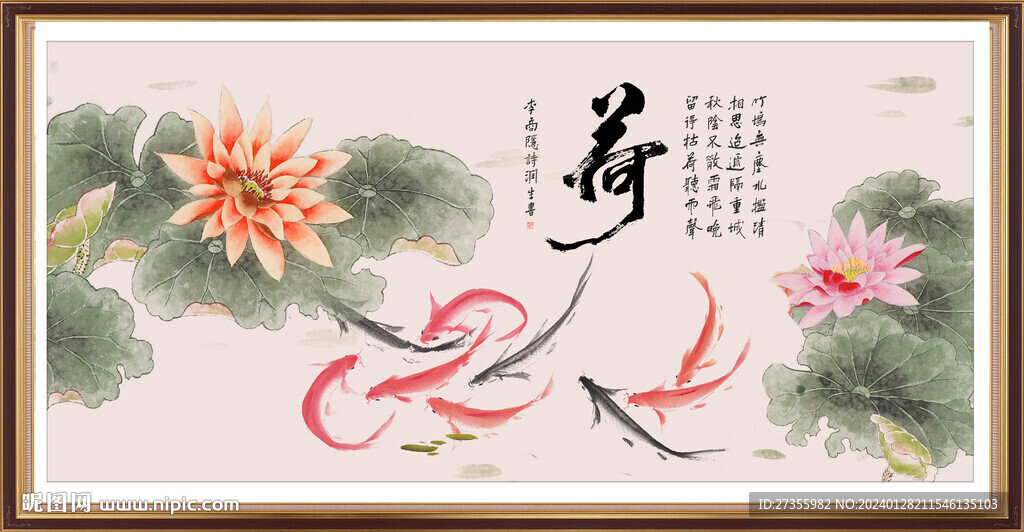 竹塢無塵水檻清
相思迢遞隔重城
秋陰不散霜飛晚
留得枯荷聽雨聲
荷
李商隱詩润生書
昵图网 www.nipic.com
ID:27355982 NO:20240128211546135103